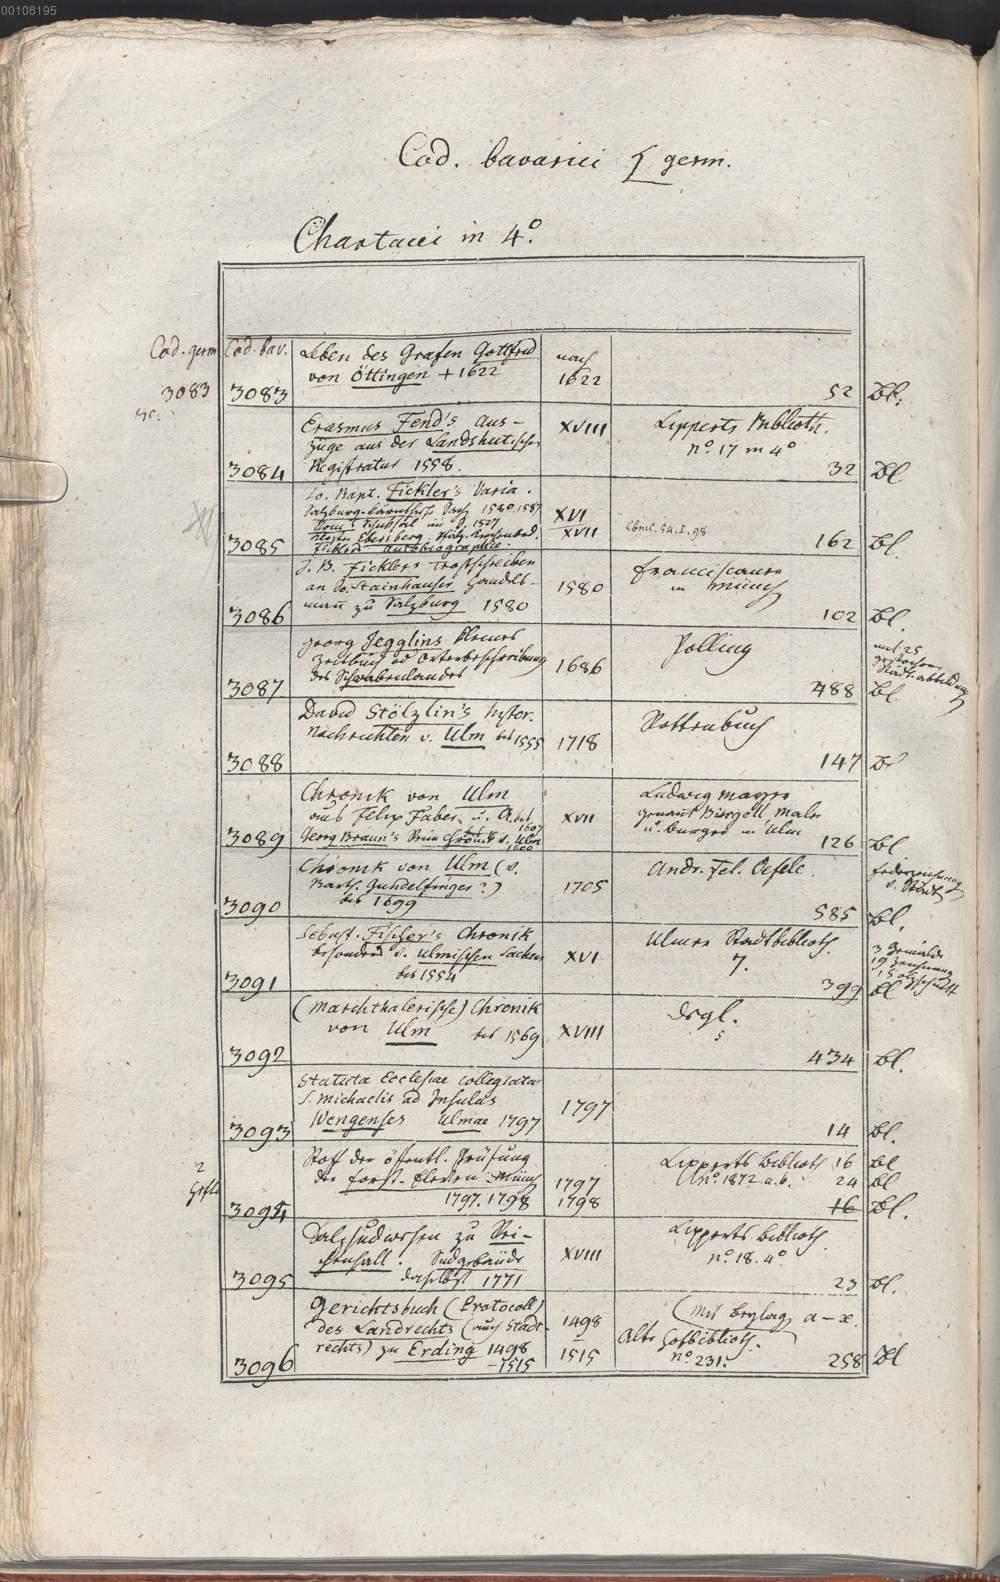 00108195
Cod. bavarici germ.
Chartacei in 4°.
Cod. germ. Cod. bav. Leben des Grafen Gottfried nach
3083 3083 von Öttingen + 1622 1622 52 Bl.
Erasmus Fend's Aus- XVIII Lipperts Biblioth.
züge aus der Landshutischen n° 17 in 4°
3084 Registratur 1558. 32 Bl
Jo. Bapt. Fickler's Varia.
1580. 1587 XVI
1527 XVII Cbmc. 54. I. 98
Ebersberg
3085 Autobiographie 162 Bl.
J. B. Ficklers Trostschreiben Franciscaner
an Jo. Stainhauser Handels- 1580 in Münch
3086 mann zu Salzburg 1580 102 Bl.
Georg Jegglins kleines Polling mit 25
Zeitbuch od Ortenbeschreibung 1686 gestochenen
3087 des Schwabenlandes 488 Bl Städt-abbildungen
David Stölzlin's histor. Rottenbuch
Nachrichten v. Ulm bis 1555 1718
3088 147 Bl
Chronik von Ulm Ludwig Mayrs
aus Felix Faber u. A. bis 1607 XVII genant Maler
3089 Georg Braun's Reim Chronik v. Ulm bis 1600 u. burger in Ulm 126 Bl
Chronik von Ulm (v. Andr. Fel. Oefele Federzeichnung
Barth. Gundelfinger?) 1705 v. Städt
3090 bis 1699 585 Bl.
Sebast. Fischer's Chronik Ulmer Stadtbiblioth. 3 Gemälde
besonders v. Ulmischen Sachen XVI 7. 19 Zeichnung
3091 bis 1554 399 Bl 15 Holzschnitt
(Marchthalerische) Chronik dsgl.
von Ulm bis 1569 XVIII 5
3092 434 Bl.
Statuta Ecclesiae Collegiatae
S. Michaelis ad Insulas 1797
3093 Wengenses Ulmae 1797 14 Bl.
2 Stoff der öfentl. Prüfung Lipperts Biblioth 16 Bl
Hefte der Forst-Eleven Münch 1797 n° 1872. a. b. 24 Bl
3094 1797. 1798 1798 16 Bl.
Salzsudwesen zu Rei- Lipperts Biblioth.
chenhall. Sudgebäude XVIII n° 18. 4°
3095 daselbst 1771 23 Bl.
Gerichtsbuch (Protocoll) (mit Beylag a-x.
des Landrechts (auch Stadt- 1498 Alte Hofbiblioth.
3096 rechts) zu Erding 1498 -1515 1515 n° 231. 258 Bl